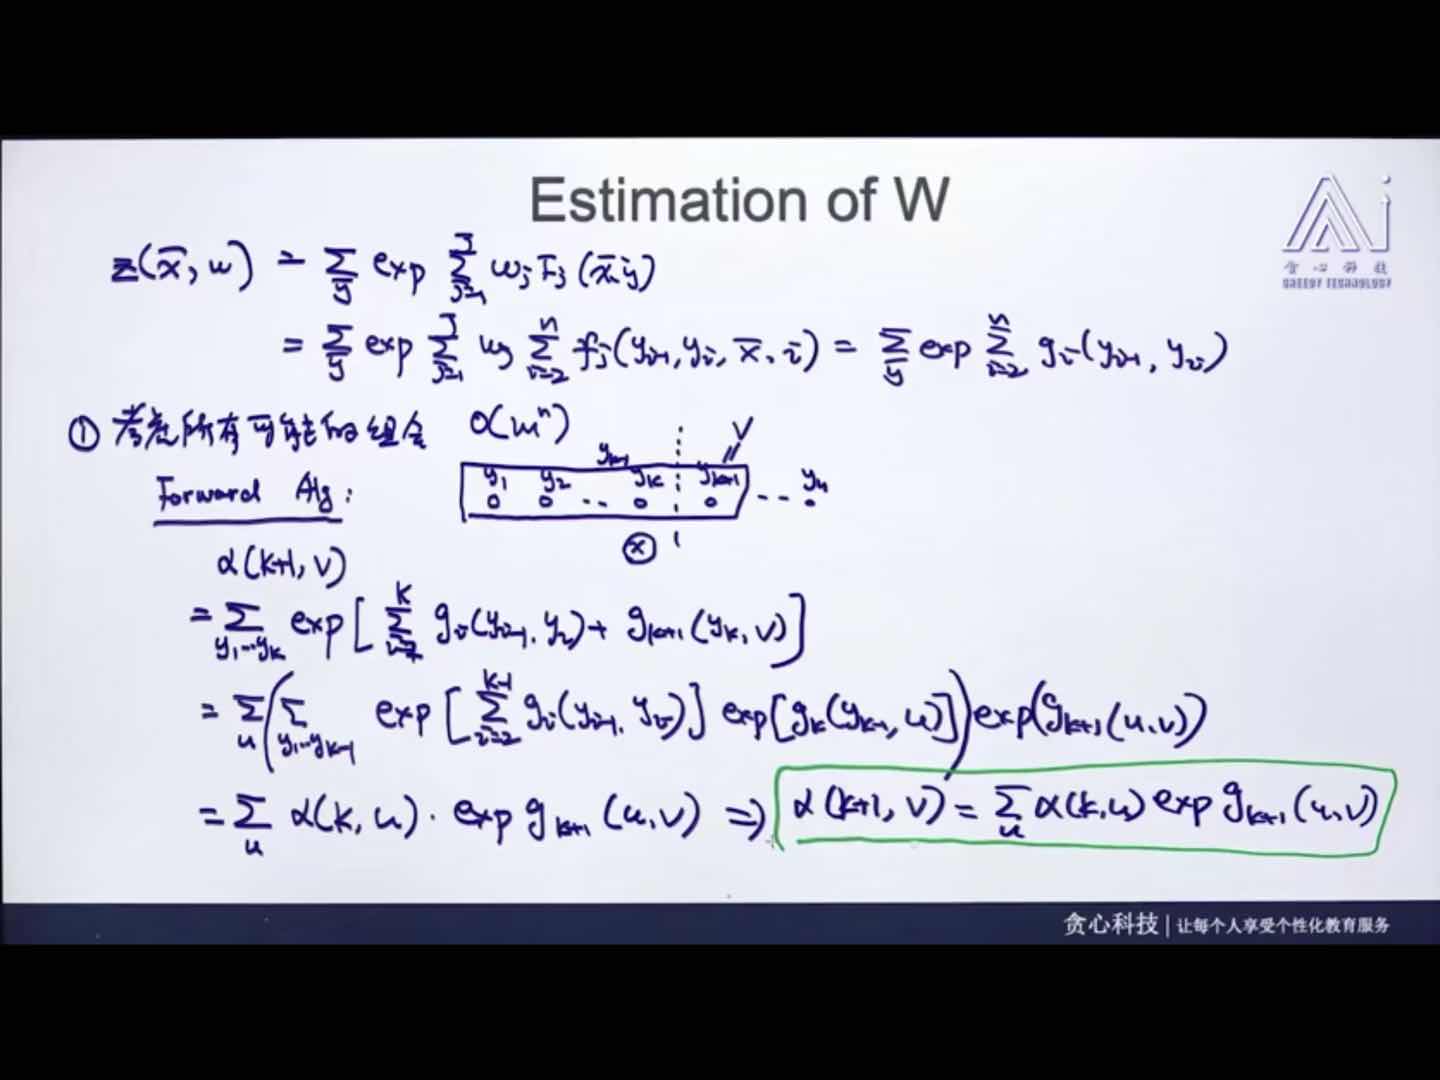 Estimation of W
贪心科技
GREEDY TECHNOLOGY
z(x̄, w) = Σ_ȳ exp Σ_{j=1}^{J} w_j F_j (x̄, ȳ)
= Σ_ȳ exp Σ_{j=1}^{J} w_j Σ_{i=2}^{n} f_j(y_{i-1}, y_i, x̄, i) = Σ_ȳ exp Σ_{i=2}^{n} g_i(y_{i-1}, y_i)
① 考虑所有可能的组合 O(m^n)
V
y_{k-1}
y_1 y_2 .. y_k y_{k+1} -- y_n
Forward Alg:
x
α(k+1, v)
= Σ_{y_1…y_k} exp[ Σ_{i=2}^{k} g_i(y_{i-1}, y_i) + g_{k+1}(y_k, v) ]
= Σ_u ( Σ_{y_1…y_{k-1}} exp[ Σ_{i=2}^{k-1} g_i(y_{i-1}, y_i) ] exp[g_k(y_{k-1}, u)] ) exp(g_{k+1}(u, v))
= Σ_u α(k, u) · exp g_{k+1} (u, v) ⇒ α(k+1, v) = Σ_u α(k, u) exp g_{k+1} (u, v)
贪心科技 | 让每个人享受个性化教育服务